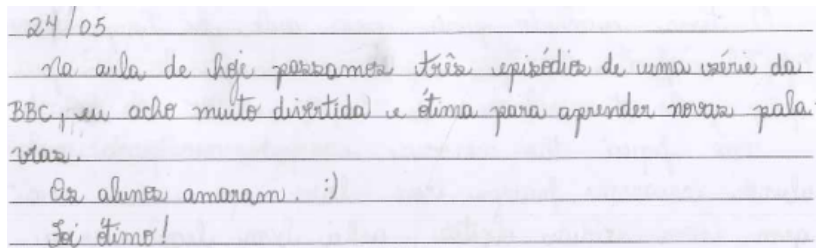 24/05
Na aula de hoje passamos três episódios de uma série da
BBC, eu acho muito divertida e ótima para aprender novas pala-
vras.
Os alunos amaram. :)
Foi ótimo!